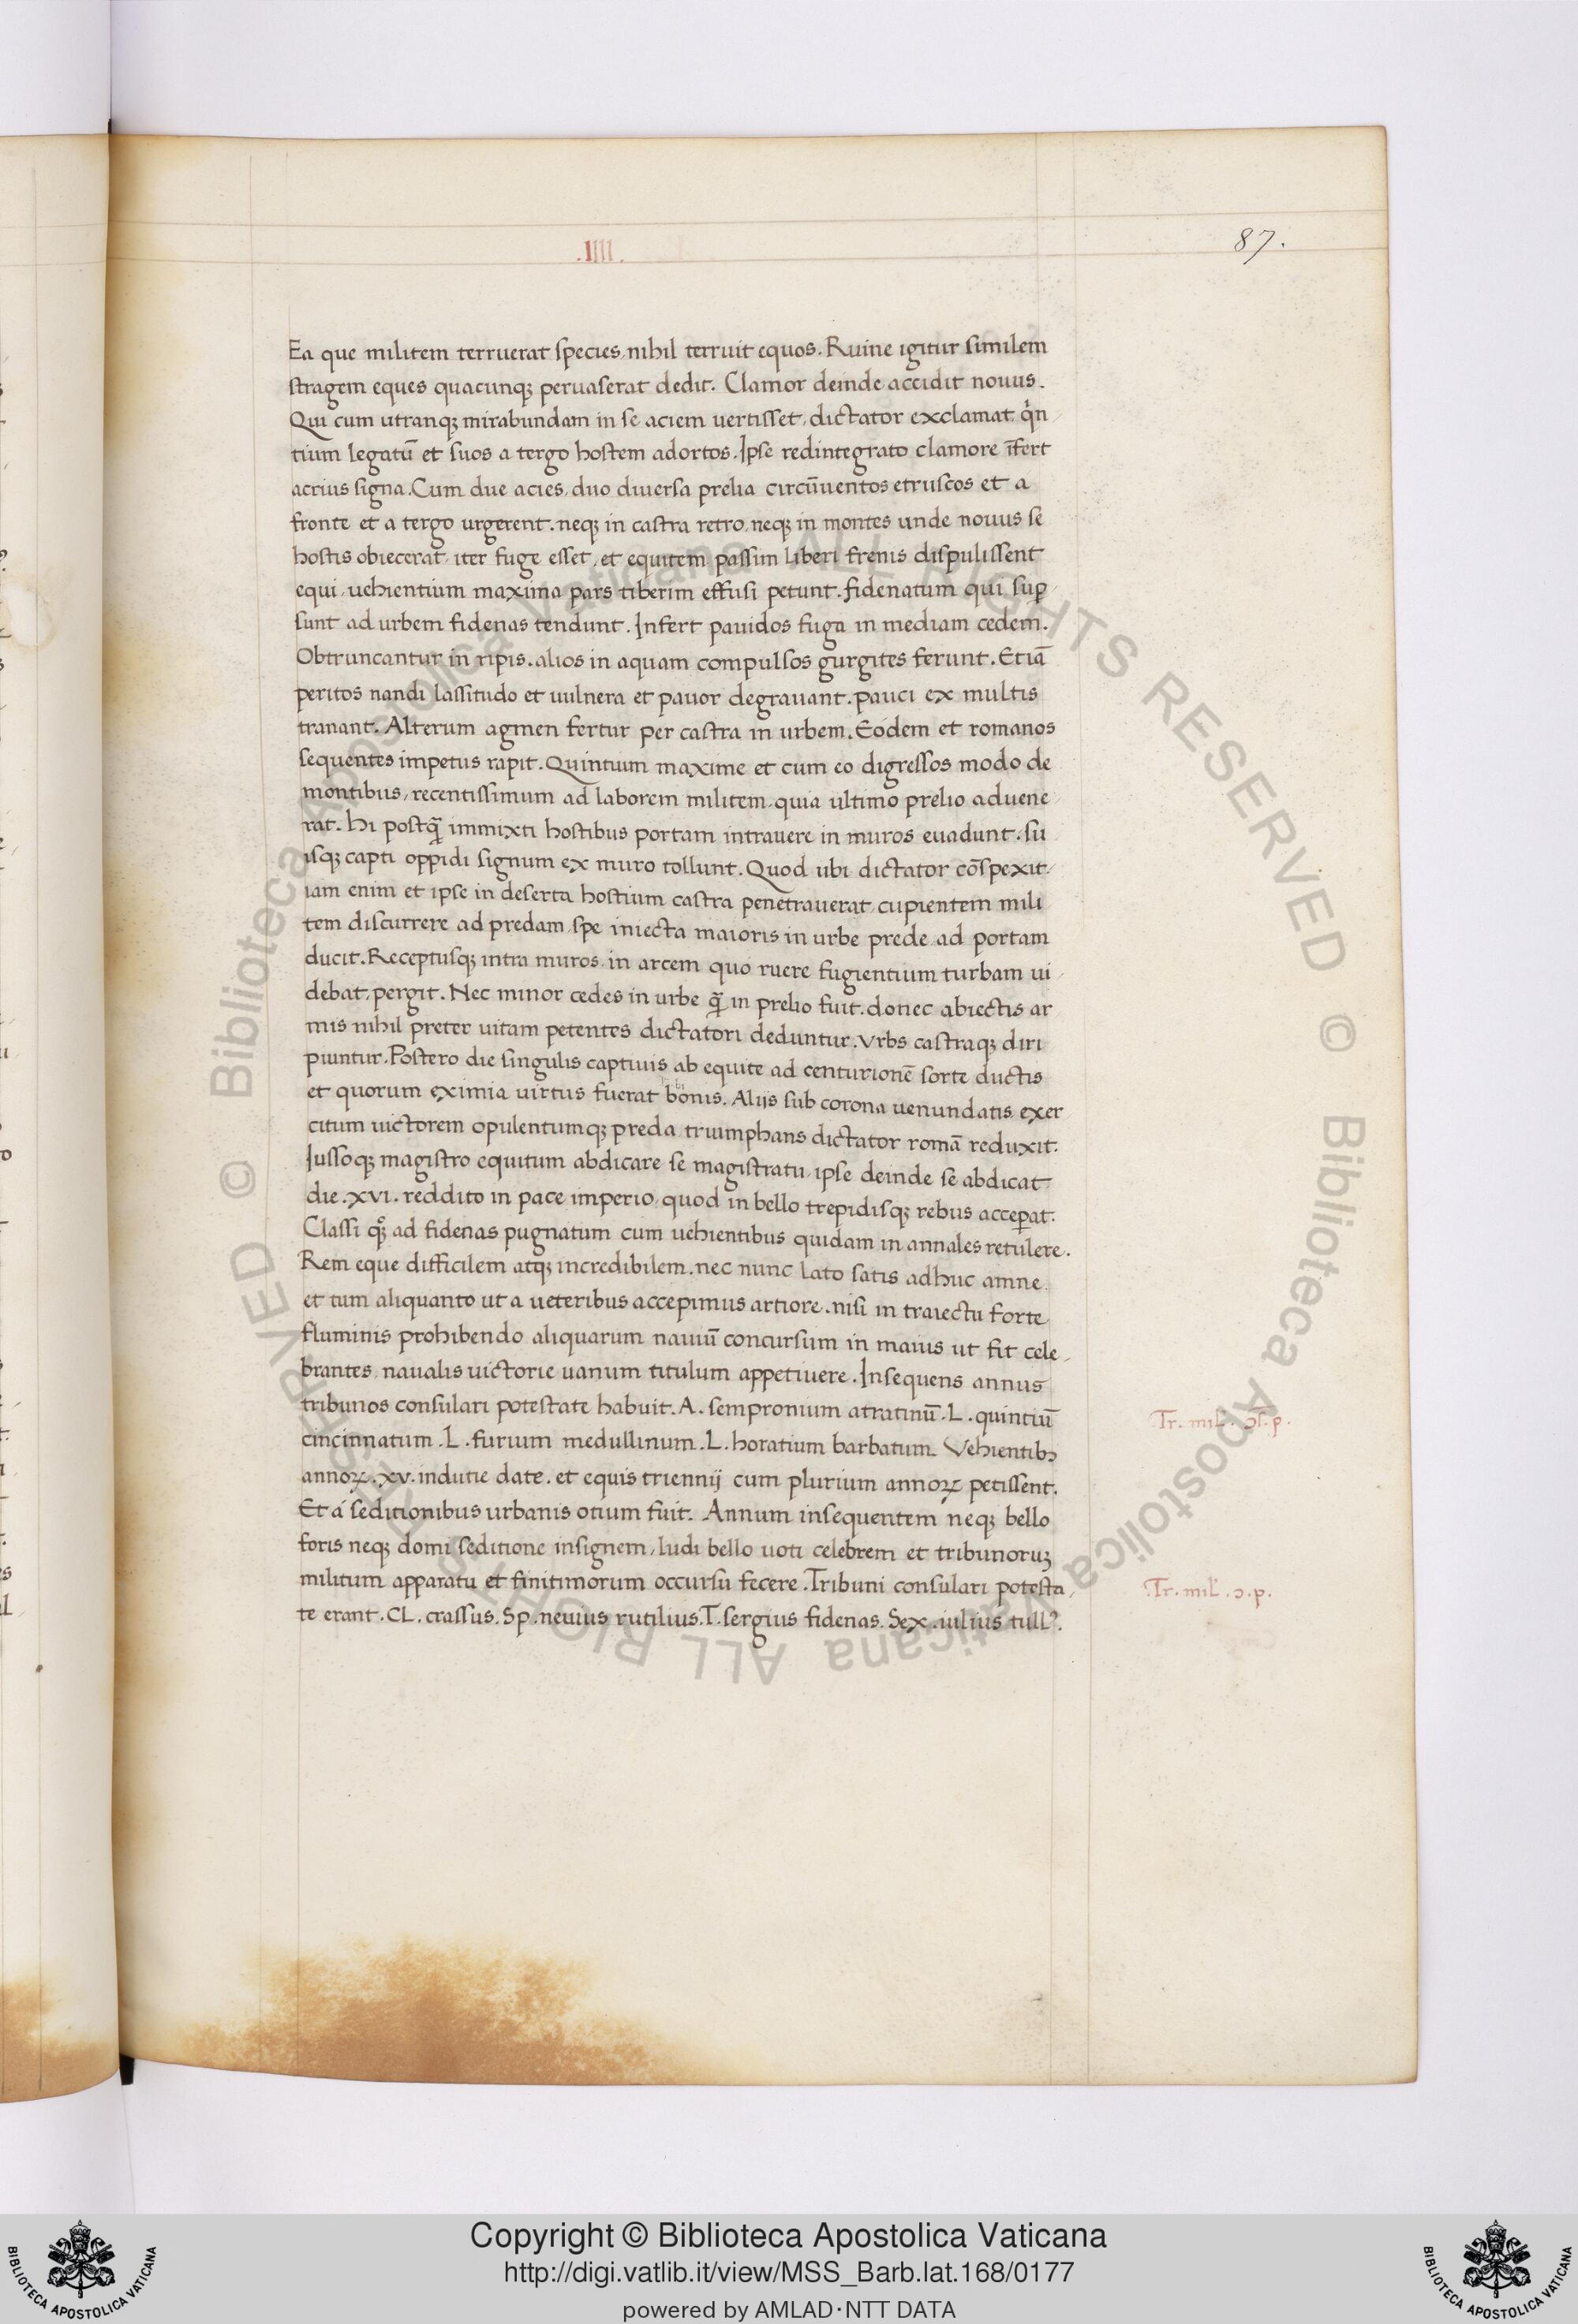 .IIII.
87.
Ea que militem terruerat species, nihil terruit equos. Ruine igitur similem
stragem eques quacunqꝫ peruaserat dedit. Clamor deinde accidit nouus.
Qui cum utranqꝫ mirabundam in se aciem uertisset, dictator exclamat qͥn
tium legatū et suos a tergo hostem adortos. Ipse redintegrato clamore īfert
acrius signa. Cum due acies, duo diuersa prelia circūuentos etruscos et a
fronte et a tergo urgerent. neqꝫ in castra retro, neqꝫ in montes unde nouus se
hostis obiecerat, iter fuge esset, et equitem passim liberi frenis dispulissent
equi, uehientium maxima pars tiberim effusi petunt. fidenatum qui suꝑ
sunt ad urbem fidenas tendunt. Infert pauidos fuga in mediam cedem.
Obtruncantur in ripis. alios in aquam compulsos gurgites ferunt. Etiā
peritos nandi lassitudo et uulnera et pauor degrauant. pauci ex multis
tranant. Alterum agmen fertur per castra in urbem. Eodem et romanos
sequentes impetus rapit. Quintium maxime et cum eo digressos modo de
montibus, recentissimum ad laborem militem, quia ultimo prelio aduene
rat. Hi postꝙ̄ immixti hostibus portam intrauere in muros euadunt. su
isqꝫ capti oppidi signum ex muro tollunt. Quod ubi dictator cōspexit,
iam enim et ipse in deserta hostium castra penetrauerat, cupientem mili
tem discurrere ad predam, spe iniecta maioris in urbe prede, ad portam
ducit. Receptusqꝫ intra muros, in arcem quo ruere fugientium turbam ui
debat, pergit. Nec minor cedes in urbe ꝙ̄ in prelio fuit. donec abiectis ar
mis nihil preter uitam petentes dictatori deduntur. Vrbs castraqꝫ diri
piuntur. Postero die singulis captiuis ab equite ad centurionē sorte ductis
et quorum eximia uirtus fuerat bonis. Alijs sub corona uenundatis, exer
citum uictorem opulentumqꝫ preda, triumphans dictator romā reduxit.
Iussoqꝫ magistro equitum abdicare se magistratu, ipse deinde se abdicat
die .xvi. reddito in pace imperio, quod in bello trepidisqꝫ rebus acceꝑat.
Classi qꝫͦ ad fidenas pugnatum cum uehientibus quidam in annales retulere.
Rem eque difficilem atqꝫ incredibilem. nec nunc lato satis adhuc amne,
et tum aliquanto ut a ueteribus accepimus artiore. nisi in traiectu forte
fluminis prohibendo aliquarum nauiū concursum in maius ut fit cele
brantes, naualis uictorie uanum titulum appetiuere. Insequens annus
tribunos consulari potestate habuit. A. sempronium atratinū. L. quintiū
cincinnatum. L. furium medullinum. L. horatium barbatum. Vehientibꝫ
annoꝝ .xv. indutie date. et equis triennij cum plurium annoꝝ petissent.
Et á seditionibus urbanis otium fuit. Annum insequentem neqꝫ bello
foris neqꝫ domi seditione insignem, ludi bello uoti celebrem et tribunoruꝫ
militum apparatu et finitimorum occursu fecere. Tribuni consulari potesta
te erant. CL. crassus. Sp. neuius rutilius. T. sergius fidenas. Sex. iulius tullꝰ.
Tr. mil. ɔſ. p.
Tr. mil. ɔ. p.
© Biblioteca Apostolica Vaticana ALL RIGHTS RESERVED © Biblioteca Apostolica Vaticana ALL RIGHTS RESERVED
BIBLIOTECA APOSTOLICA VATICANA
Copyright © Biblioteca Apostolica Vaticana
http://digi.vatlib.it/view/MSS_Barb.lat.168/0177
powered by AMLAD·NTT DATA
BIBLIOTECA APOSTOLICA VATICANA